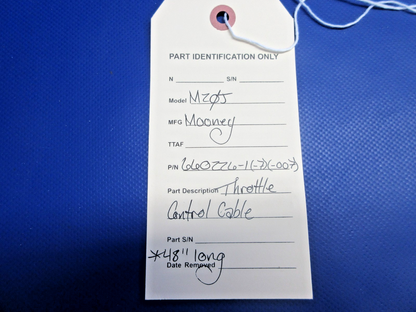 PART IDENTIFICATION ONLY
N ________ S/N ________
Model M20J
MFG Mooney
TTAF
P/N 660226-1(-7)(-007)
Part Description Throttle
Control Cable
Part S/N
*48" long
Date Removed